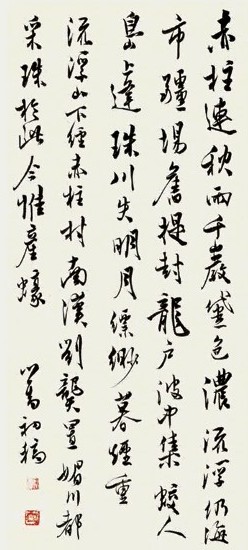 赤柱連秋雨千巖黛色濃流浮仍海
市疆場舊提封龍戶波中集鮫人
島上逢珠川失明月縹緲暮煙重
流浮山下經赤柱村南漢劉龑置媚川都
采珠於此今惟產蠔 心畬初稿